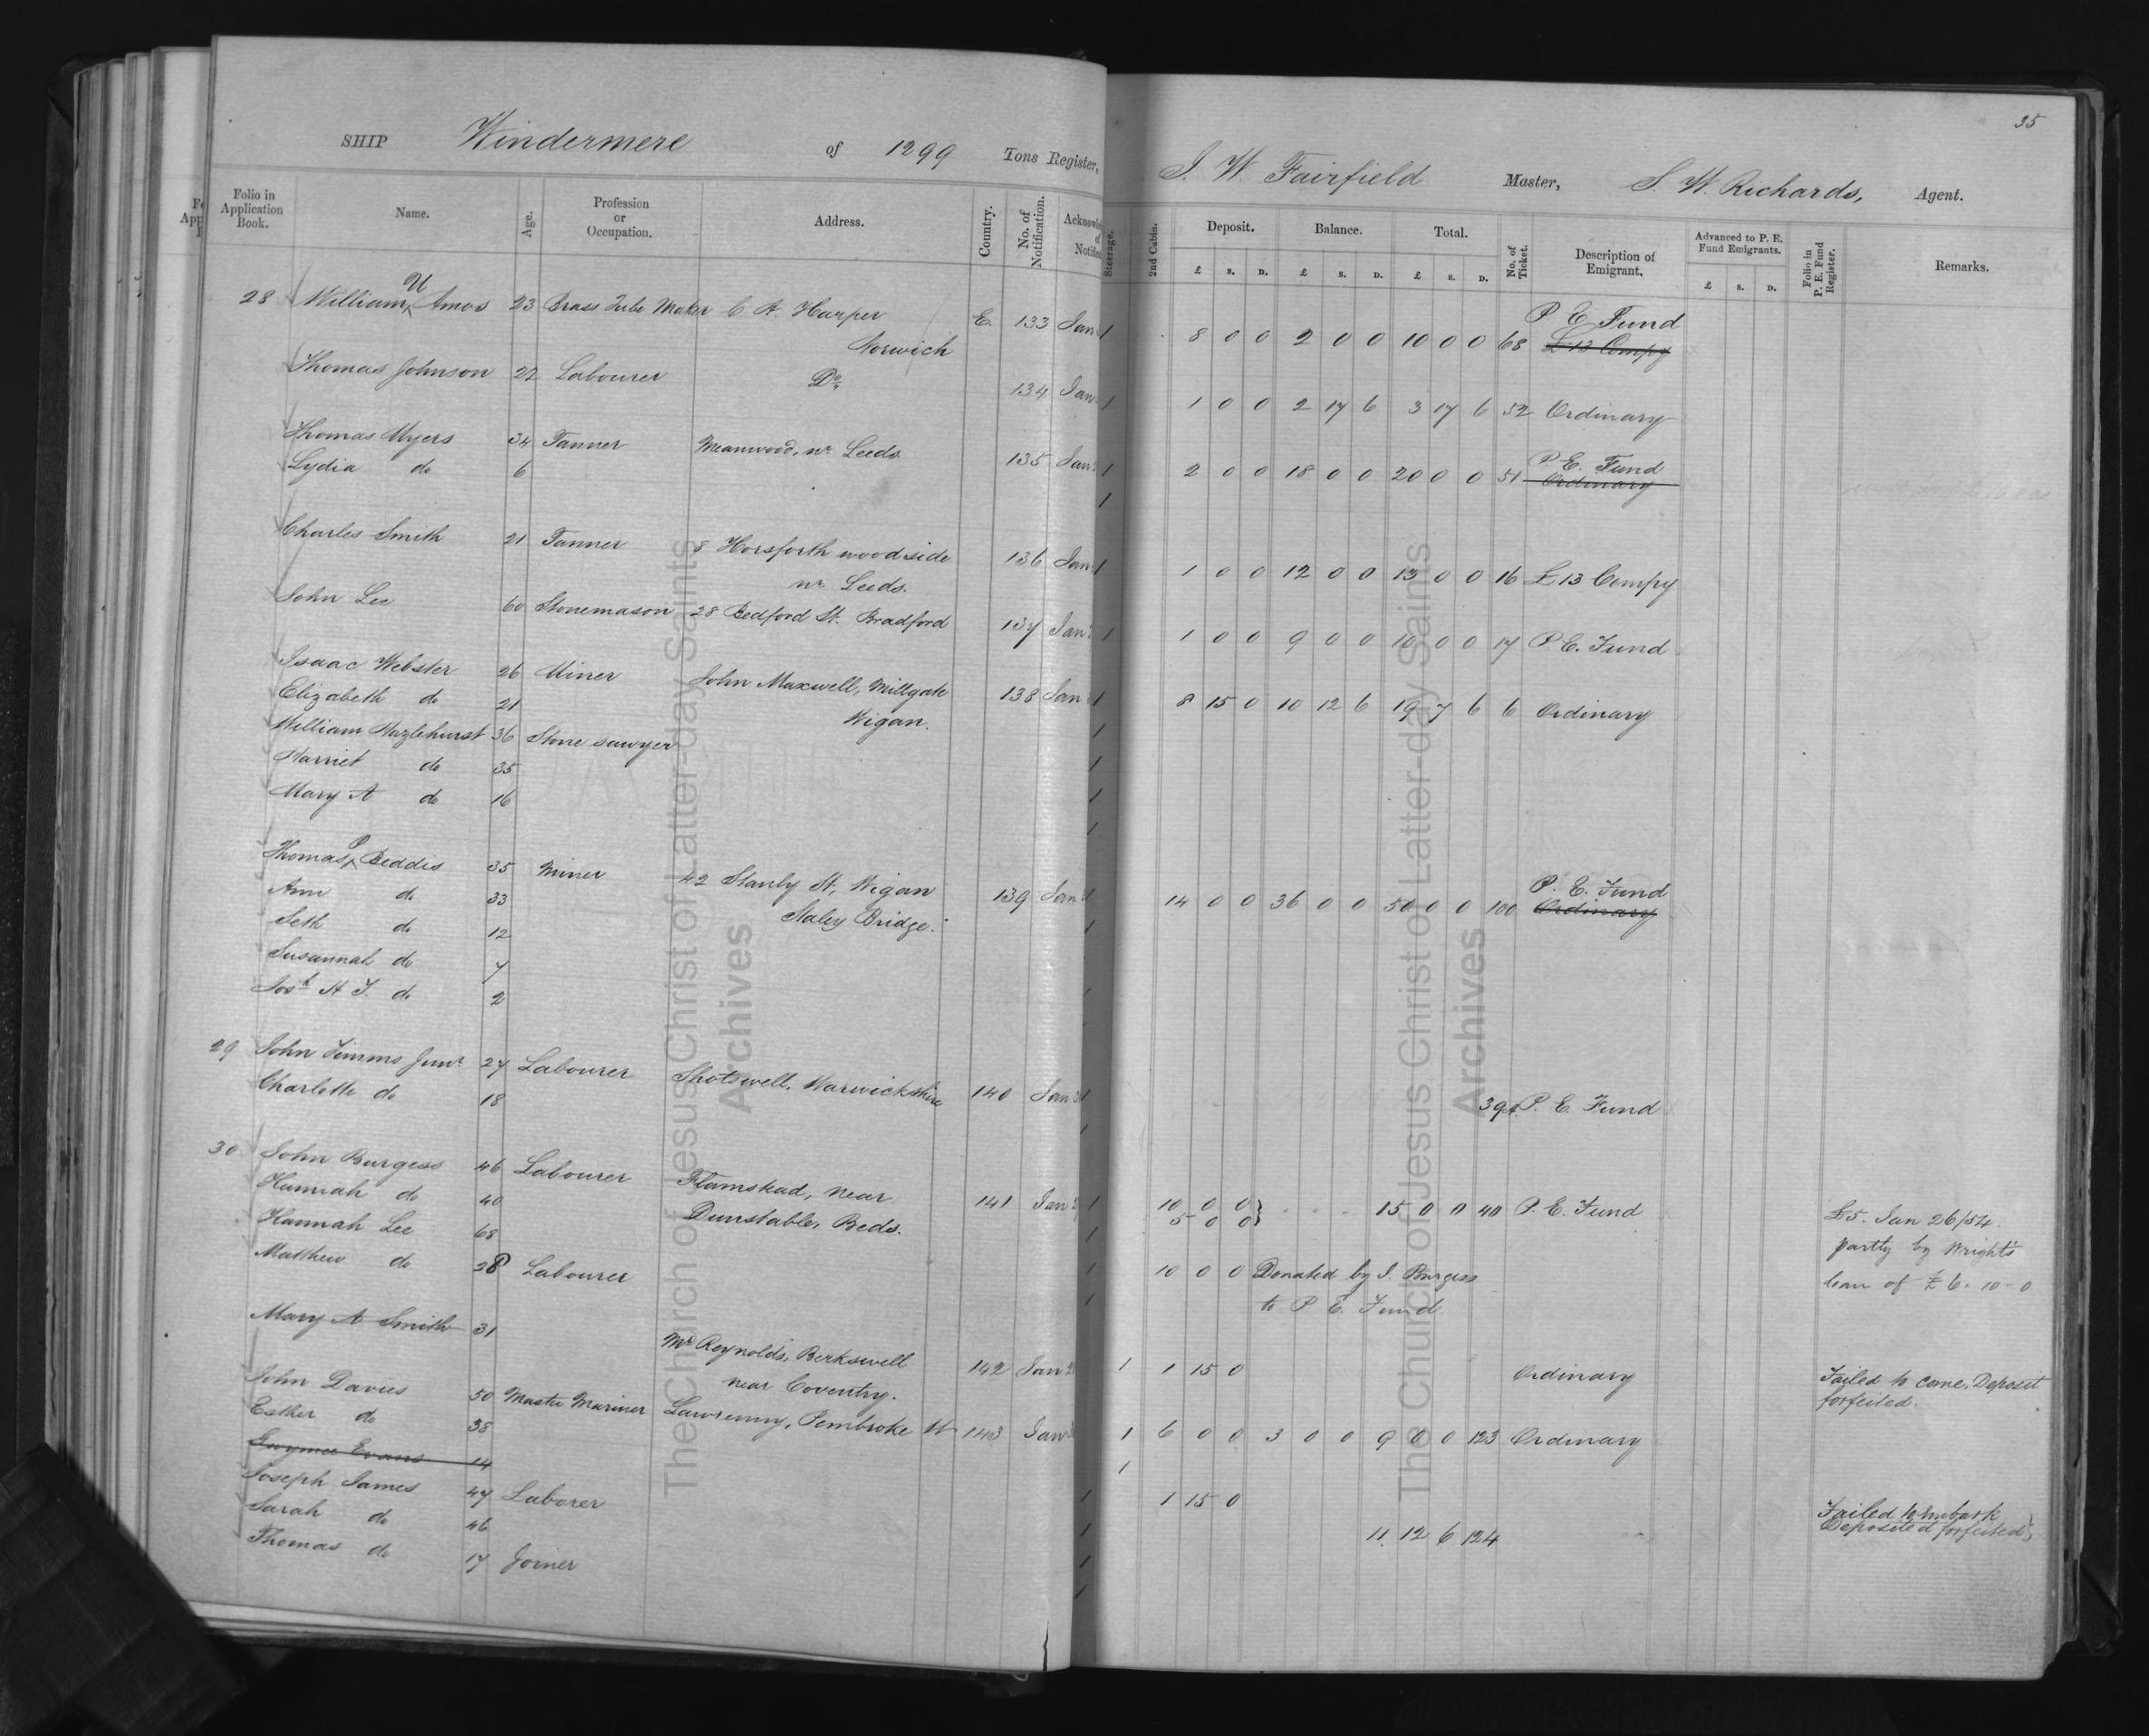 35
SHIP Windermere of 1299 Tons Register, J. W. Fairfield Master, S. W. Richards, Agent.
Folio in Application Book. Name. Age. Profession or Occupation. Address. Country. No. of Notification. Steerage. 2nd Cabin. Deposit. Balance. Total. No. of Ticket. Description of Emigrant. Advanced to P. E. Fund Emigrants. Folio in P. E. Fund Register. Remarks.
£ s. D. £ s. D. £ s. D. £ s. D.
28 William Amos 23 Brass Tube Maker C A. Harper E. 133 Jan 1 8 0 0 2 0 0 10 0 0 68 P E Fund
£13 Compy
Norwich
Thomas Johnson 22 Labourer Do 134 Jan 1 1 0 0 2 17 6 3 17 6 52 Ordinary
Thomas Myers 34 Tanner Meanwood, nr Leeds. 135 Jan 1 2 0 0 18 0 0 20 0 0 51 P E. Fund
Ordinary
Lydia do 6 1
Charles Smith 21 Tanner 8 Horsforth woodside 136 Jan 1 1 0 0 12 0 0 13 0 0 16 £13 Compy
nr Leeds.
John Lee 60 Stonemason 28 Bedford St. Bradford 137 Jan 1 1 0 0 9 0 0 10 0 0 17 P E. Fund
Isaac Webster 26 Miner John Maxwell, Millgate 138 Jan 1 8 15 0 10 12 6 19 7 6 6 Ordinary
Elizabeth do 21 Wigan. 1
William Hazlehurst 36 Stone sawyer 1
Harriet do 35 1
Mary A do 16 1
Thomas P Beddis 35 Miner 42 Stanly St, Wigan 139 Jan 1 14 0 0 36 0 0 50 0 0 100 P. E. Fund
Ordinary
Ann do 33 Staley Bridge. 1
Seth do 12
Susannah do 7
Josh H J. do 2
29 John Timms Junr 27 Labourer Shotswell, Warwickshire 140 Jan 1 39 P. E Fund
Charlotte do 18
30 John Burgess 46 Labourer Flamstead, near 141 Jan 1 10 0 0 15 0 0 40 P. E. Fund £5. Jan 26/54.
5 0 0
Hannah do 40 Dunstable, Beds. 1 partly by Wright's
Hannah Lee 68 1 10 0 0 Donated by J. Burgess loan of £6-10-0
Matthew do 28 Labourer 1 to P E. Fund
Mary A Smith 31 Mr Reynolds, Berkswell 142 Jan 1 1 15 0 Ordinary Failed to come. Deposit
near Coventry. forfeited.
John Davies 50 Master Mariner Lawrenny, Pembroke 143 Jan 1 6 0 0 3 0 0 9 0 0 123 Ordinary
Esther do 38 1
Evans 14 1 15 0 Failed to Embark
Deposited forfeited
Joseph James 47 Laborer 11. 12 6 124
Sarah do 46
Thomas do 17 Joiner
The Church of Jesus Christ of Latter-day Saints
Archives
The Church of Jesus Christ of Latter-day Saints
Archives